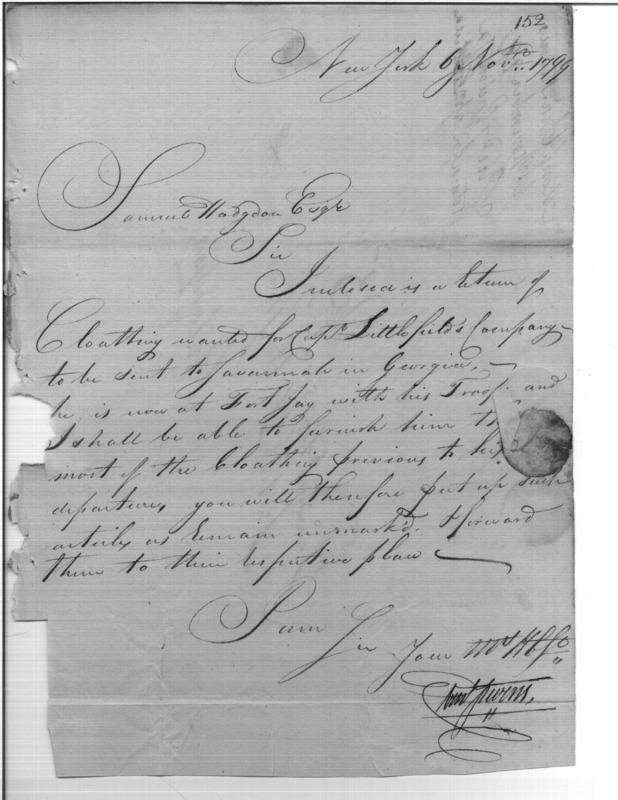 152
New York 6 Novr. 1799
Samuel Hodgdon Esqr
Sir
Inclosed is a Return of
Cloathing wanted for Capt. Littlefield's Company
to be sent to Savannah in Georgia,
he is now at Fort Jay with his Troops and
I shall be able to furnish him
most of the Cloathing previous to his
departure, you will therefore put up such
articles as Remain unmark'd. & forward
them to their respective place
I am Sir Your
Stevens,